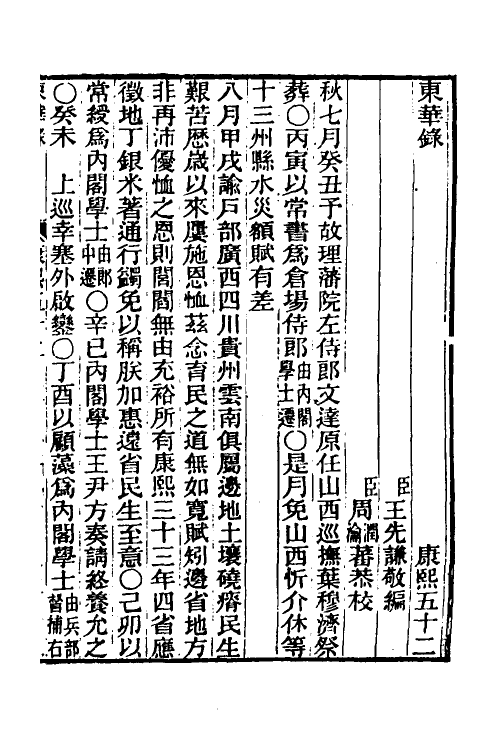 東華錄　康熙五十二
臣王先謙敬編
臣周潤瀹蕃恭校
秋七月癸丑予故理藩院左侍郎文達原任山西巡撫葉穆濟祭
葬○丙寅以常書爲倉場侍郎由內閣學士遷○是月免山西忻介休等
十三州縣水災額賦有差
八月甲戌諭戶部廣西四川貴州雲南俱屬邊地土壤磽瘠民生
艱苦歷歲以來屢施恩恤茲念育民之道無如寬賦矧邊省地方
非再沛優恤之恩則閭閻無由充裕所有康熙三十三年四省應
徵地丁銀米著通行蠲免以稱朕加惠遠省民生至意○己卯以
常綬爲內閣學士由郎中遷○辛巳內閣學士王尹方奏請終養允之
○癸未　上巡幸塞外啟鑾○丁酉以顧藻爲內閣學士由兵部督捕右
東華錄